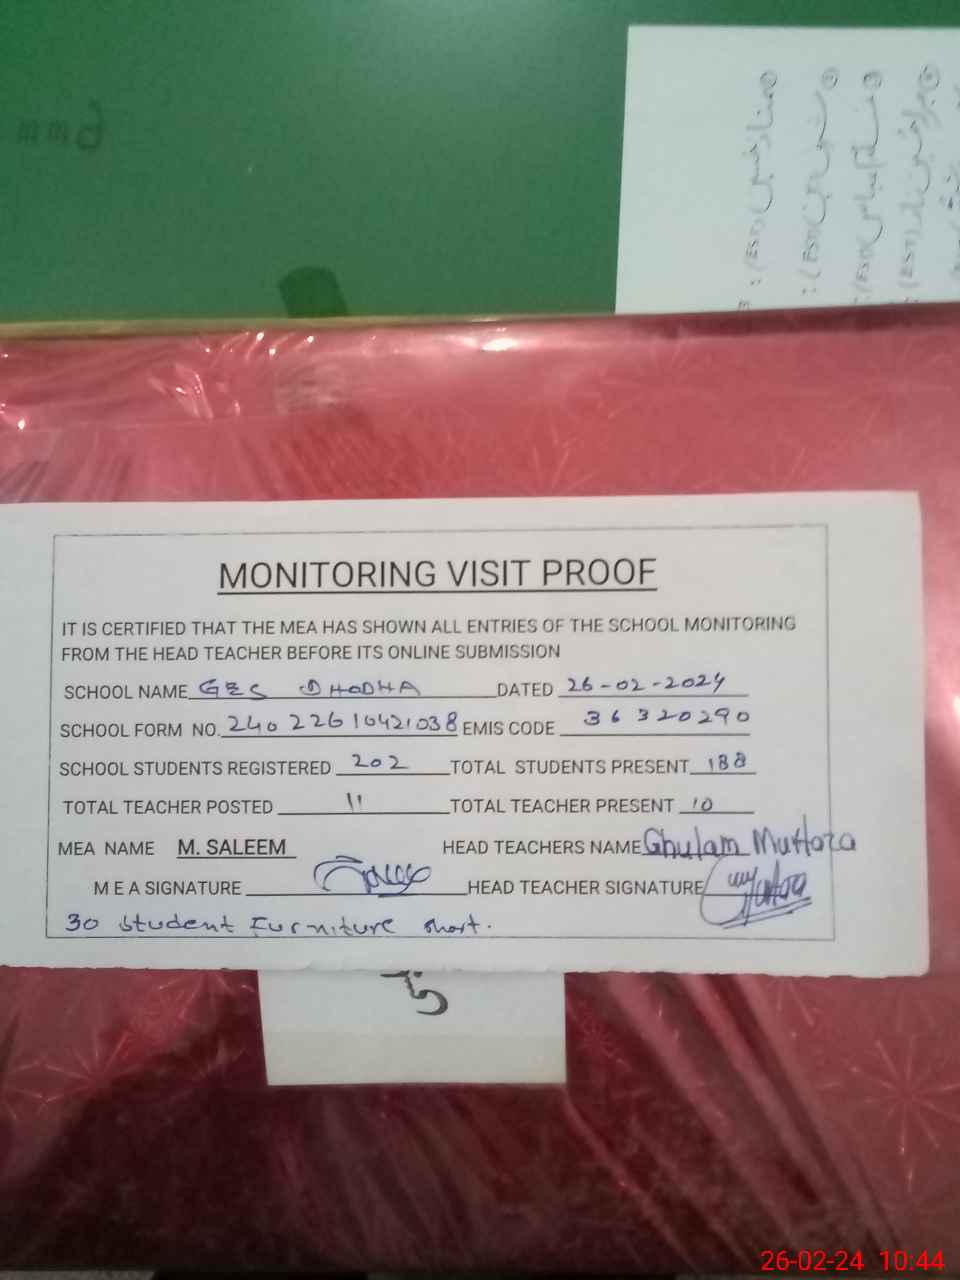 MONITORING VISIT PROOF
IT IS CERTIFIED THAT THE MEA HAS SHOWN ALL ENTRIES OF THE SCHOOL MONITORING
FROM THE HEAD TEACHER BEFORE ITS ONLINE SUBMISSION
SCHOOL NAME GES DHODHA DATED 26-02-2024
SCHOOL FORM NO. 240 22610421038 EMIS CODE 36320290
SCHOOL STUDENTS REGISTERED 202 TOTAL STUDENTS PRESENT 188
TOTAL TEACHER POSTED 11 TOTAL TEACHER PRESENT 10
MEA NAME M. SALEEM HEAD TEACHERS NAME Ghulam Murtaza
M E A SIGNATURE HEAD TEACHER SIGNATURE
30 student Furniture short.
26-02-24 10:44